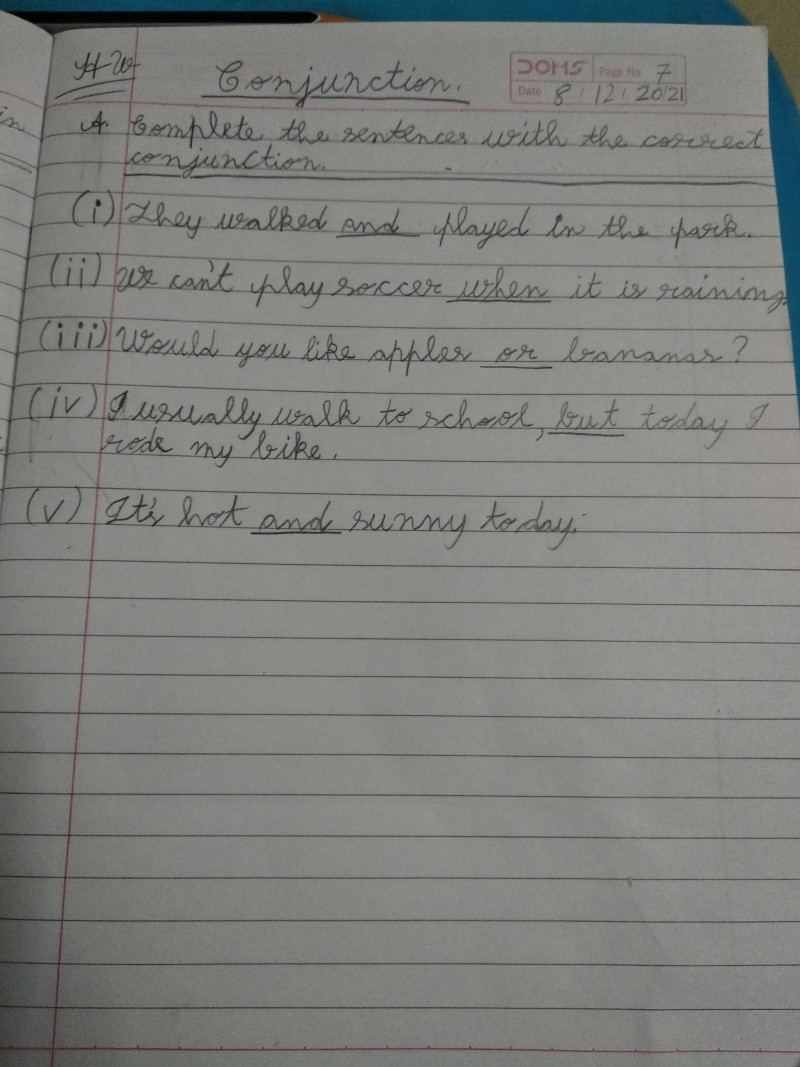 H.W
Conjunction.
DOMS Page No. 7
Date 8/12/2021
in
A. Complete the sentences with the correct
conjunction.
(i) They walked and played in the park.
(ii) We can't play soccer when it is raining.
(iii) Would you like apples or bananas?
(iv) I usually walk to school, but today I
rode my bike.
(v) It's hot and sunny today.